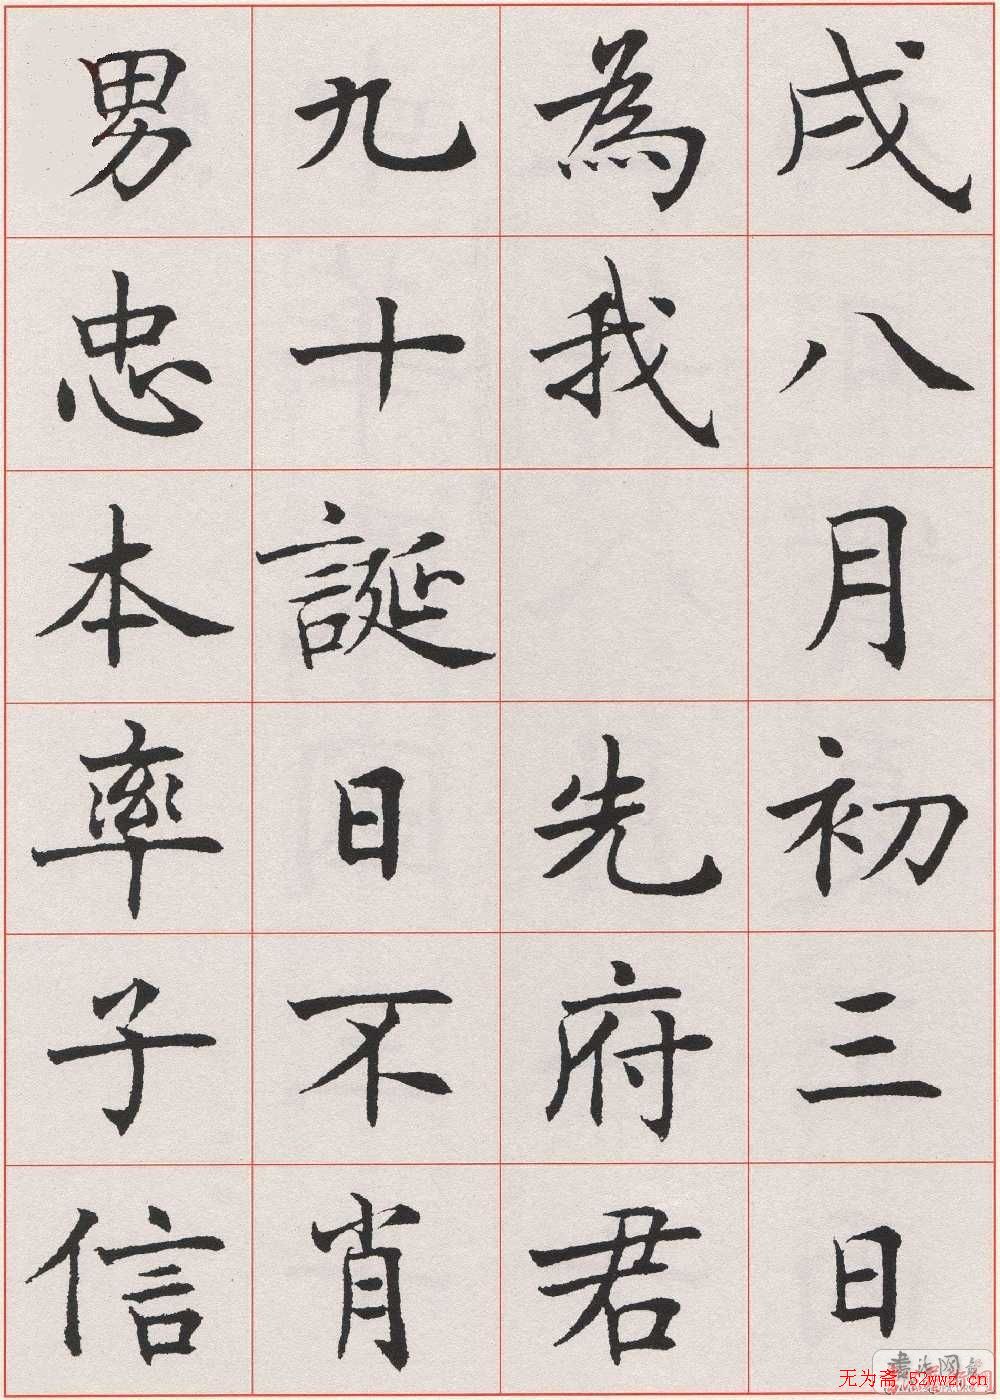 戌八月初三日
為我 先府君
九十誕日不肖
男忠本率子信
无为斋 52wwz.cn